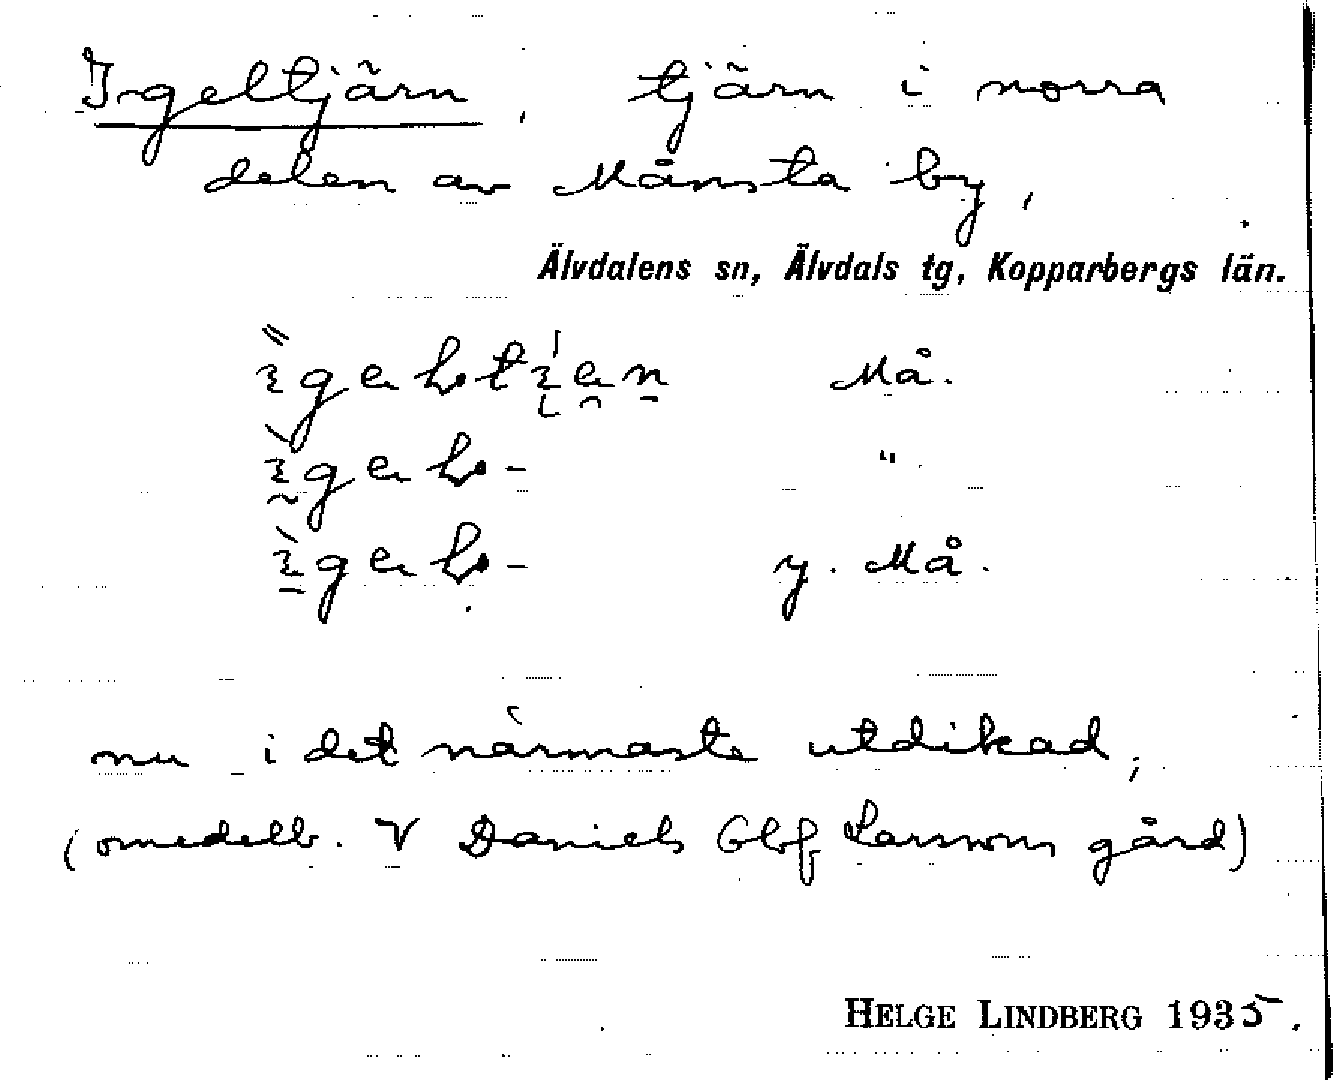 Igeltjärn, tjärn i norra
delen av Månsta by,
Älvdalens sn, Älvdals tg, Kopparbergs län.
Må.
"
y. Må.
nu i det närmaste utdikad,
(omedelb. V Daniels Olof Larssons gård)
HELGE LINDBERG 1935.